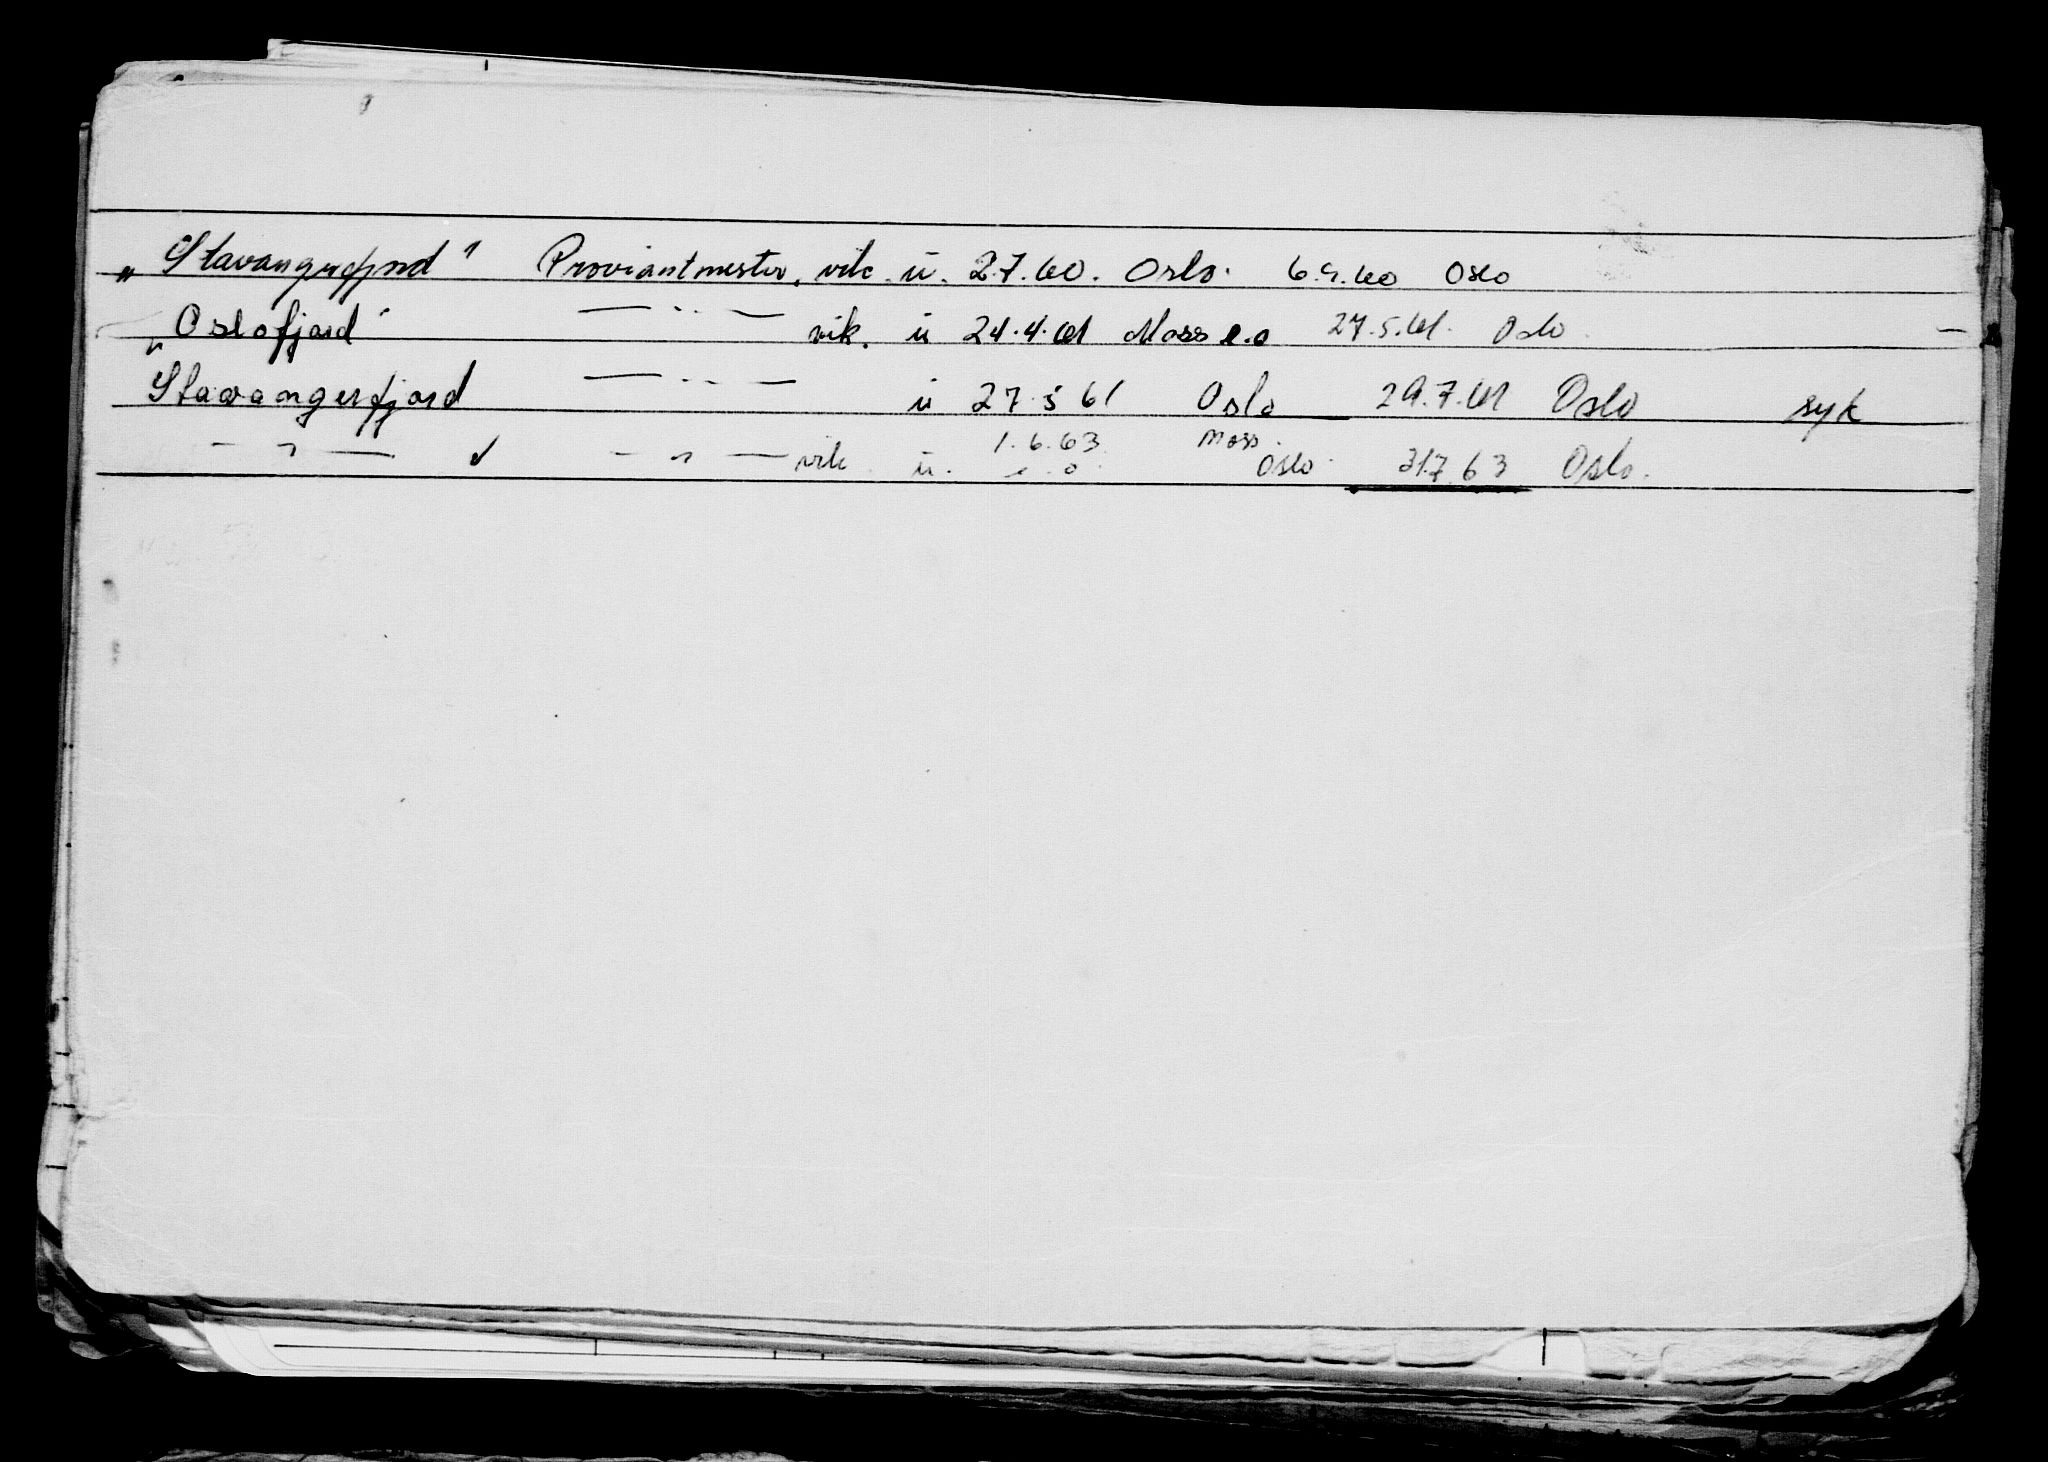 „Stavangerfjord" Proviantmester, vik. u. 2.7.60. Oslo. 6.9.60 Oslo
„Oslofjord" — „ — vik. u 24.4.61 Moss e.o 27.5.61. Oslo. —
Stavangerfjord — „ — u 27.5 61 Oslo 29.7.61 Oslo syk
— „ — ✓ — „ — vik u. 1.6.63. e.o. Moss. Oslo. 31.7 63 Oslo.